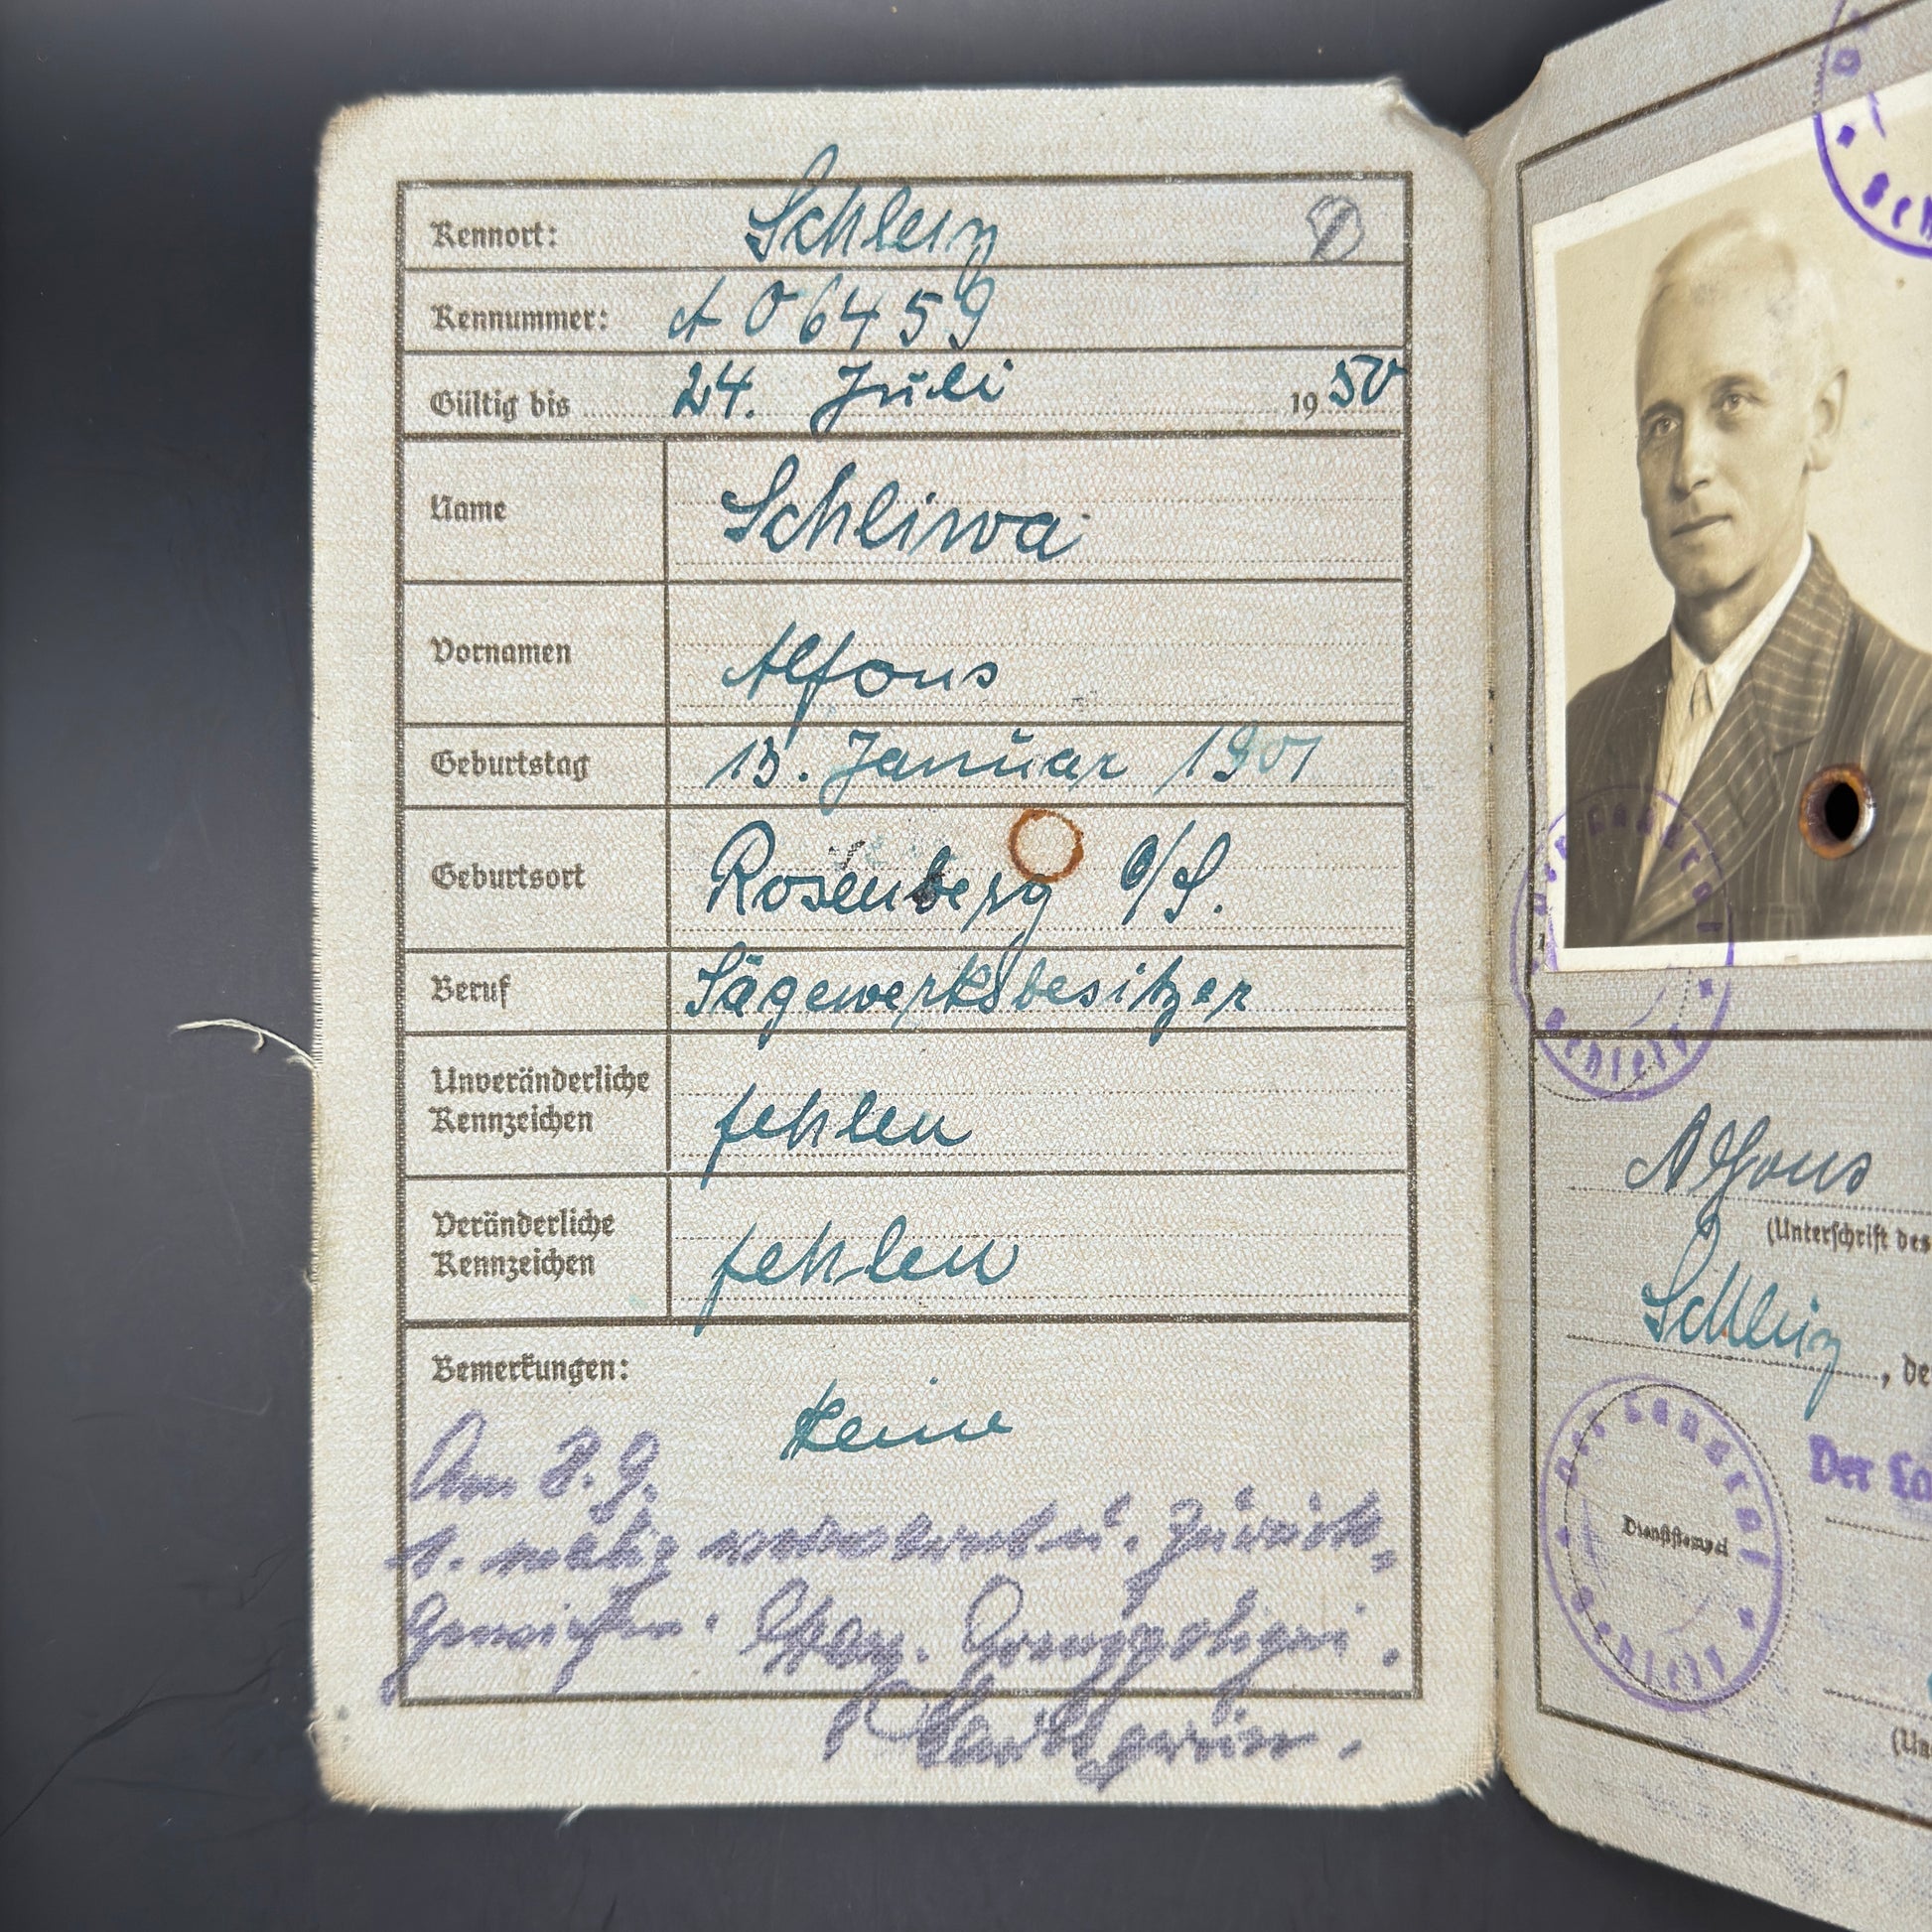 Kennort: Schleiz
Kennummer: A 06459
Gültig bis 24. Juli 1950
Name Schliwa
Vornamen Alfons
Geburtstag 13. Januar 1901
Geburtsort Rosenberg O/S.
Beruf Sägewerksbesitzer
Unveränderliche
Kennzeichen fehlen
Veränderliche
Kennzeichen fehlen
Bemerkungen:
keine
Am 8. 9.
1. u. Zurück-
gewiesen. Grenzpolizei.
Der Landrat
Schleiz
Alfons
(Unterschrift des
Schleiz, de
Der Landrat
Schleiz
Dienststempel
Der La
(Un